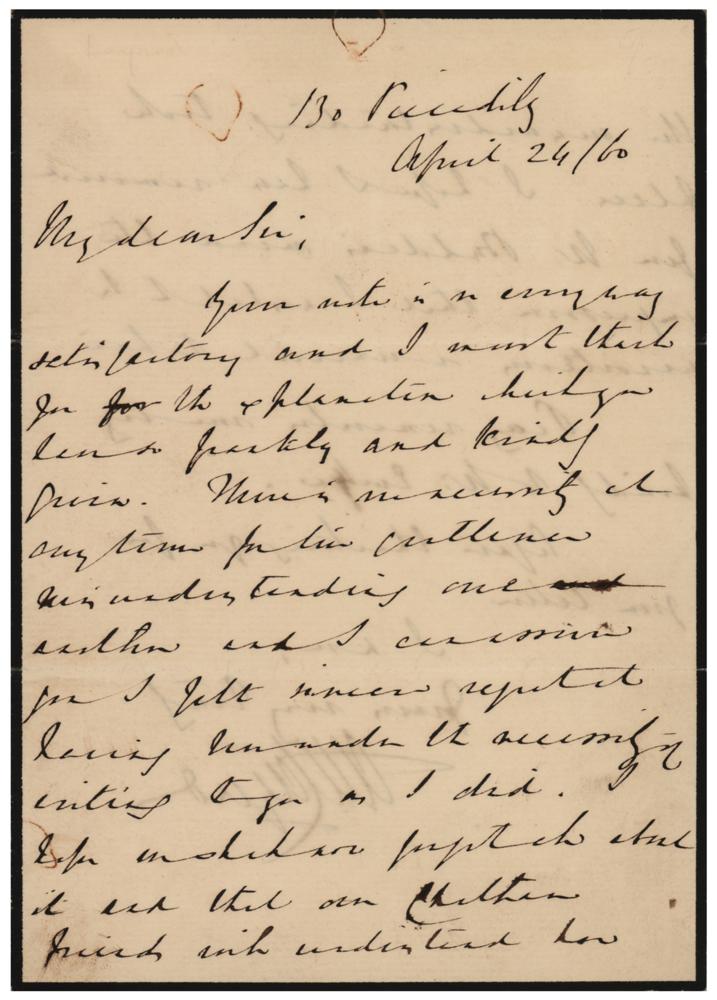 130 Piccadily
April 24/60
My dear Sir,
Your note is in every way
satisfactory and I must thank
you for the explanation which you
have so frankly and kindly
given. There is no necessity at
any time for two gentlemen
misunderstanding one and
another and I can assure
you I felt sincere regret at
having been under the necessity of
writing to you as I did. I
hope we shall now forget all about
it and that our
friends will understand how